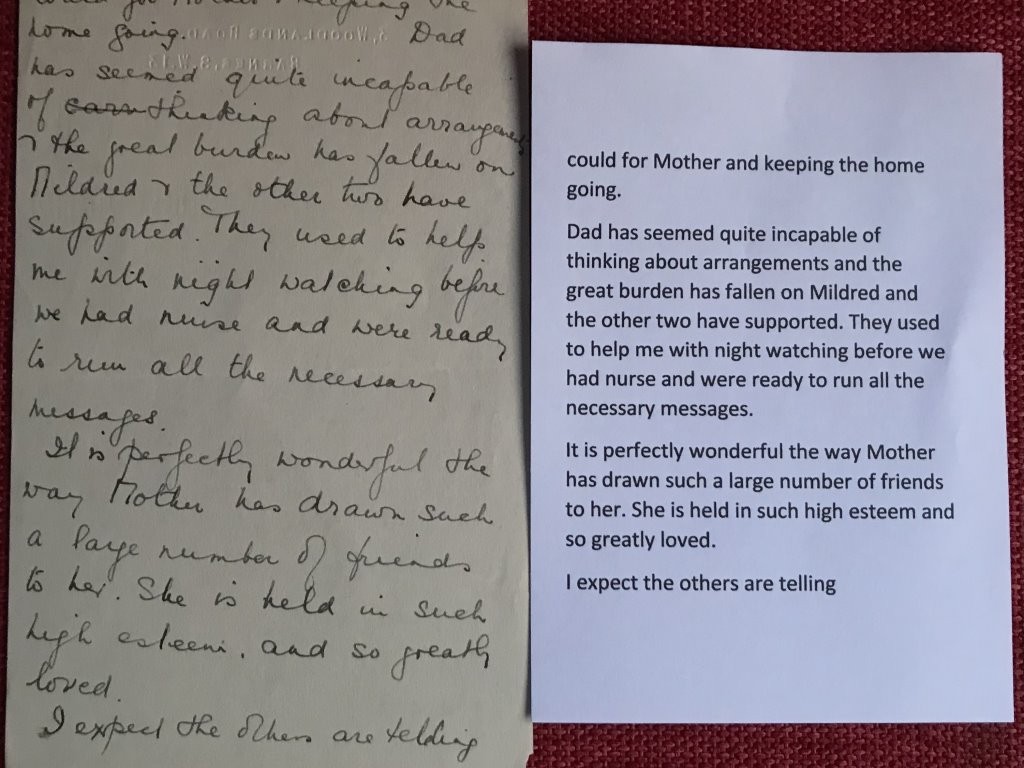 could for Mother & keeping the
home going. Dad
has seemed quite incapable
of thinking about arrangements
& the great burden has fallen on
Mildred & the other two have
supported. They used to help
me with night watching before
we had nurse and were ready
to run all the necessary
messages.
It is perfectly wonderful the
way Mother has drawn such
a large number of friends
to her. She is held in such
high esteem, and so greatly
loved.
I expect the others are telling
could for Mother and keeping the home
going.
Dad has seemed quite incapable of
thinking about arrangements and the
great burden has fallen on Mildred and
the other two have supported. They used
to help me with night watching before we
had nurse and were ready to run all the
necessary messages.
It is perfectly wonderful the way Mother
has drawn such a large number of friends
to her. She is held in such high esteem and
so greatly loved.
I expect the others are telling